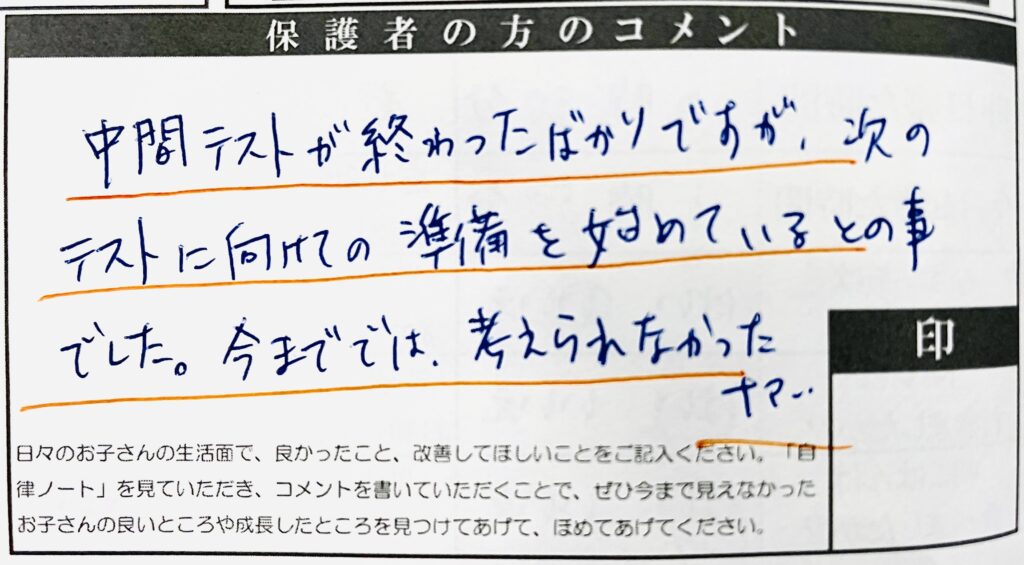 保護者の方のコメント
中間テストが終わったばかりですが、次の
テストに向けての準備を始めているとの事
でした。今まででは、考えられなかった
印
日々のお子さんの生活面で、良かったこと、改善してほしいことをご記入ください。「自
律ノート」を見ていただき、コメントを書いていただくことで、ぜひ今まで見えなかった
お子さんの良いところや成長したところを見つけてあげて、ほめてあげてください。